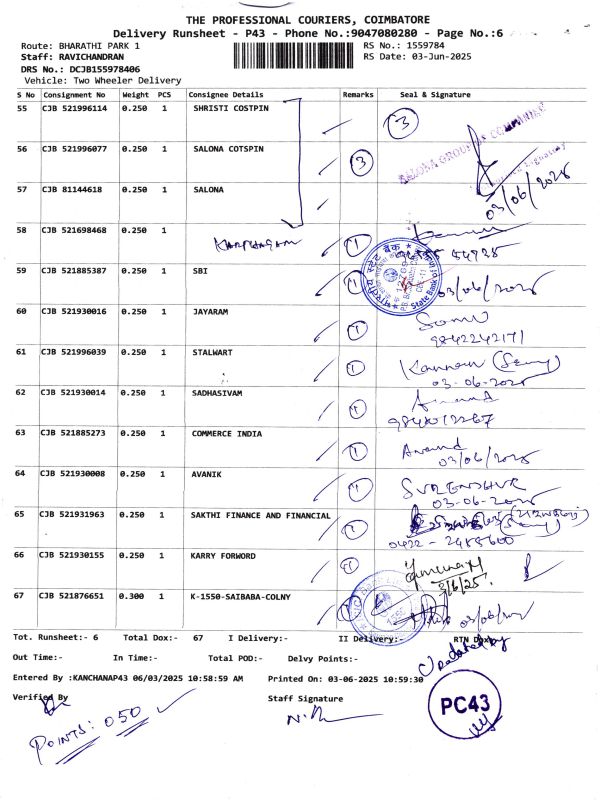 THE PROFESSIONAL COURIERS, COIMBATORE
Delivery Runsheet - P43 - Phone No.:9047080280 - Page No.:6
Route: BHARATHI PARK 1
RS No.: 1559784
Staff: RAVICHANDRAN
RS Date: 03-Jun-2025
DRS No.: DCJB155978406
Vehicle: Two Wheeler Delivery
S No Consignment No Weight PCS Consignee Details Remarks Seal & Signature
55 CJB 521996114 0.250 1 SHRISTI COSTPIN 3
56 CJB 521996077 0.250 1 SALONA COTSPIN 3
SALONA GROUP OF COMPANIES
57 CJB 81144618 0.250 1 SALONA
03/06/2025
58 CJB 521698468 0.250 1 KARPAGAM 1
59 CJB 521885387 0.250 1 SBI 1 03/06/2025
State Bank of
60 CJB 521930016 0.250 1 JAYARAM 1 Somu
9842242171
61 CJB 521996039 0.250 1 STALWART 1 Kannan
03-06-2025
62 CJB 521930014 0.250 1 SADHASIVAM 1
63 CJB 521885273 0.250 1 COMMERCE INDIA 1 Anand
03/06/2025
64 CJB 521930008 0.250 1 AVANIK 1 SURENDHUR
03-06-2025
65 CJB 521931963 0.250 1 SAKTHI FINANCE AND FINANCIAL 1
66 CJB 521930155 0.250 1 KARRY FORWORD 1
3/6/25
67 CJB 521876651 0.300 1 K-1550-SAIBABA-COLNY 1 03/06/2025
Tot. Runsheet:- 6 Total Dox:- 67 I Delivery:- II Delivery:- RTN Dox:-
Out Time:- In Time:- Total POD:- Delvy Points:-
Updated by
Entered By :KANCHANAP43 06/03/2025 10:58:59 AM Printed On: 03-06-2025 10:59:30
Verified By Staff Signature
PC43
POINTS: 050